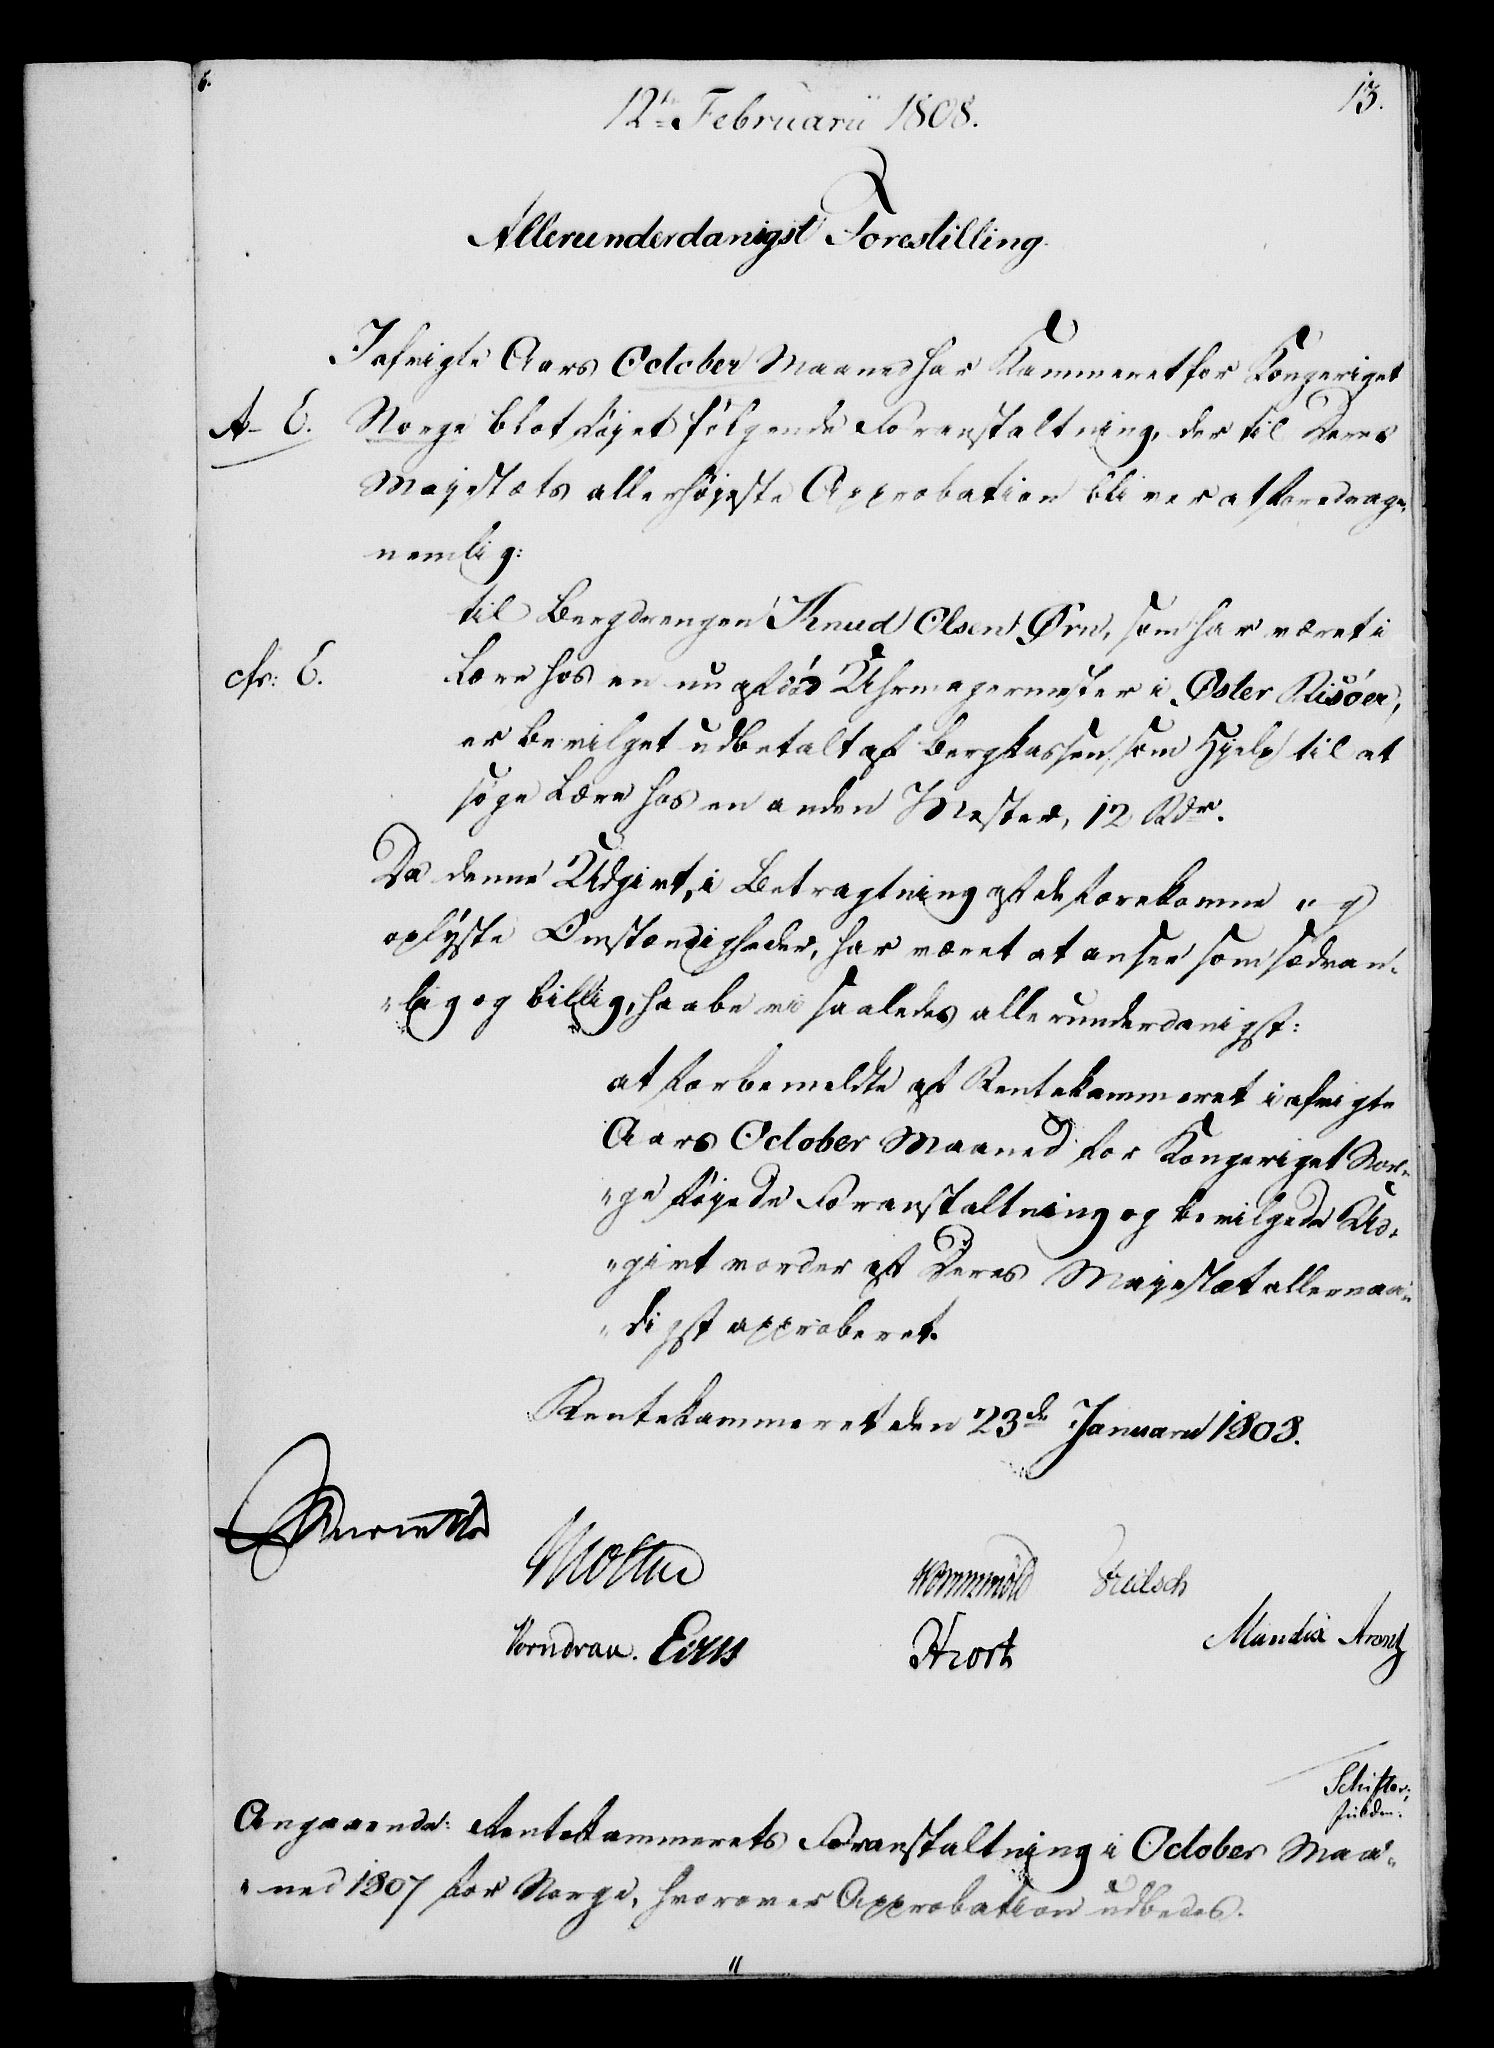 13.
12te Februarii 1808.
Allerunderdanigst Forestilling
I afvigte Aars October Maaned har Kammeret for Kongeriget
A- E. Norge blot føjet følgende Foranstaltning, der til Deres
Majestæts allerhøjeste Approbation bliver at foredrage,
nemlig:
til Bergdrengen Knud Olsen Ørn, som har været i
cfr: E. Lære hos en nu afdød Uhrmagermester i Øster Risöer,
er bevilget udbetalt af Bergkassen, som Hjelp til at
søge Lære hos en anden Mester, 12 Rdr.
Da denne Udgivt, i Betragtning af de forekomne og
oplyste Omstændigheder, har været at ansee som sædvan-
"lig og billig, haabe vi saaledes allerunderdanigst:
at forbemeldte af Rentekammeret i afvigte
Aars October Maaned for Kongeriget Nor-
"ge føjede Foranstaltning og bevilgede Ud-
"givt vorder af Deres Majestæt allernaa-
"digst approberet.
Rentekammeret den 23de Januarii 1808.
Reventlow
Moltke
Wormskiold Freilsch
Vorndran. Eskes Hiort Mandix Arentz
Schifter;
Angaaende: Rentekammerets Foranstaltning i October Maa-
"ned 1807 for Norge, hvorover Approbation udbedes.